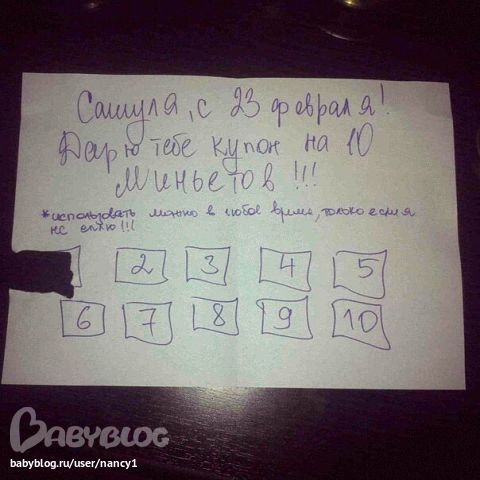 Сашуля, с 23 февраля!
Дарю тебе купон на 10
миньетов!!!
*использовать можно в любое время, только если я
не сплю!!!
2 3 4 5
6 7 8 9 10
BABYBLOG
babyblog.ru/user/nancy1